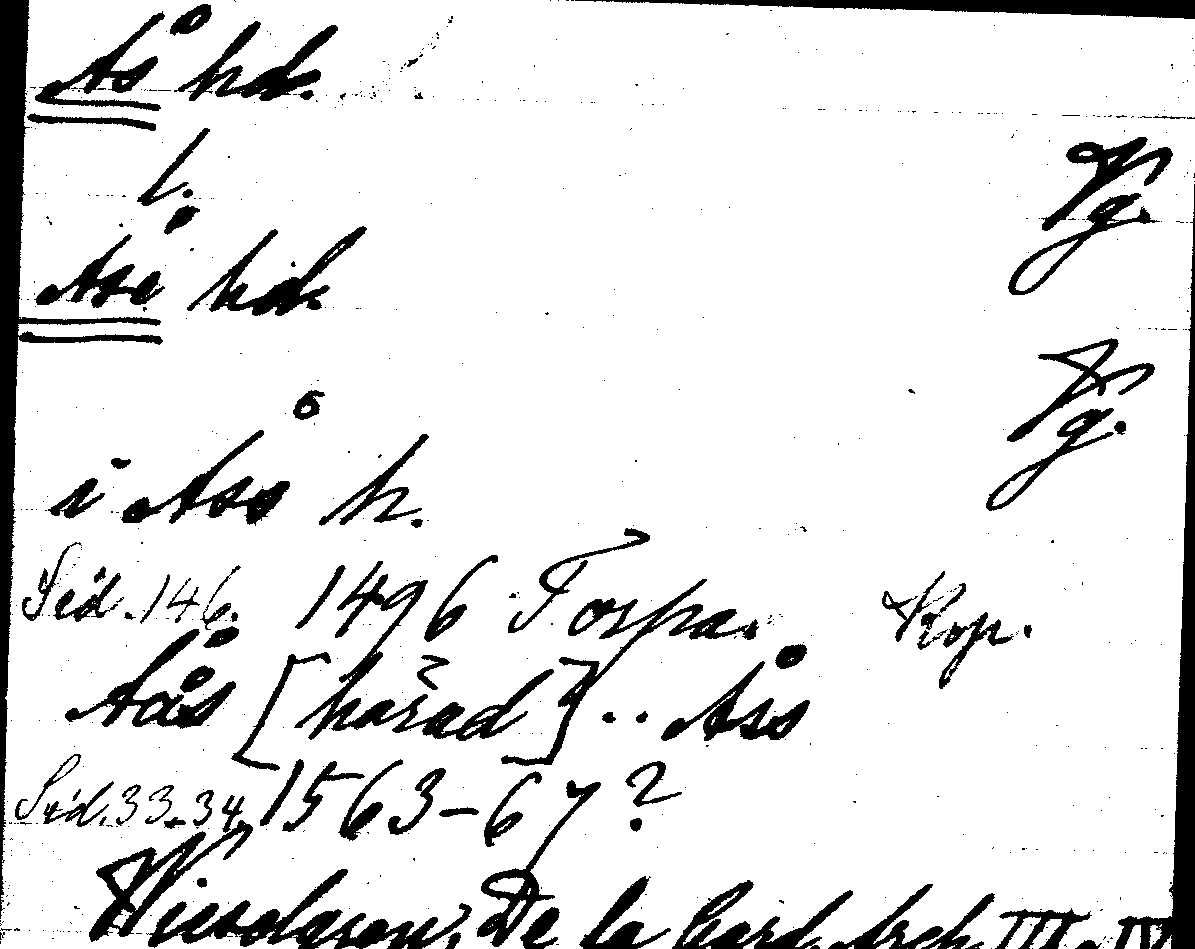 Ås hd.
l.
Åse hd.
Vg.
Vg.
i Åss h.
Sid. 146. 1496 Forspa. Kop.
Åås [härad] .. Åss
Sid. 33-34. 1563-67?
Wieselgren, De la Gard. Arch III